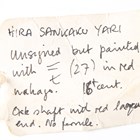 HIRA SANKAKU YARI
Unsigned but painted
with = (27) in red
nakago. 16th cent.
Oak shaft with red lacquer
end. No ferrule.